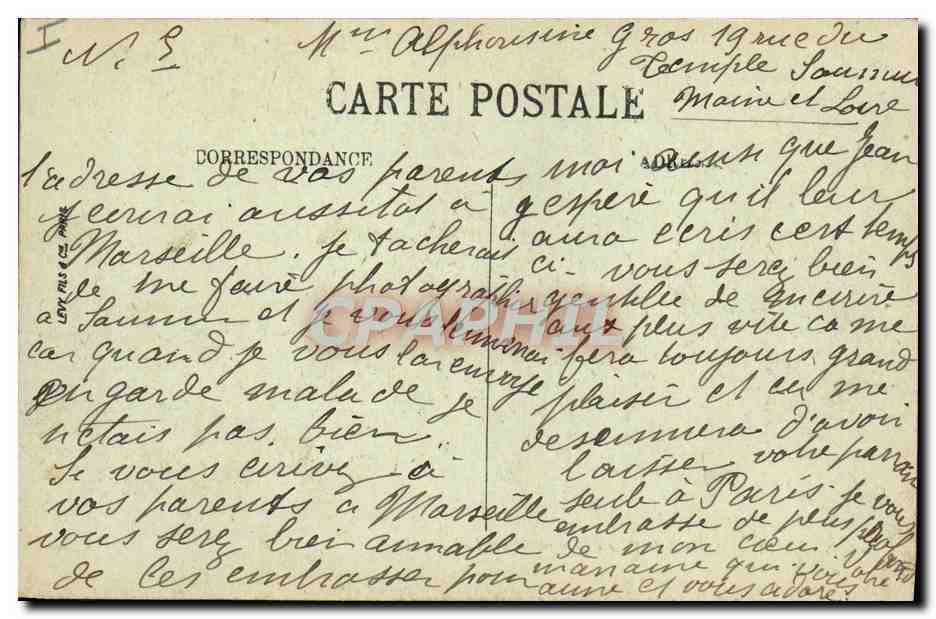 I
N. 5
Mme Alphonsine Gros 19 rue du
Temple Saumur
Maine et Loire
CARTE POSTALE
CORRESPONDANCE
LEVY FILS & Cie PARIS
l'adresse de vos parents
j ecrirai aussitot a
Marseille. je tacherai
de me faire photographier
a Saumur et je vous
car quand je vous l'ai envoyé
en garde malade je
netais pas bien.
Si vous ecrivez a
vos parents a Marseille
vous serez bien aimable
de les embrasser pour
moi ainsi que Jean
j espere qu il leur
aura ecris cest temps
ci. vous serez bien
gentille de m'ecrire
aux plus vite ca me
fera toujours grand
plaisir et ca me
desennuiera d'avoir
laisser votre parrain
seule à Paris. je vous
embrasse de plus profond
de mon cœur. votre
maraine qui vous
aime et vous adore.
CPAPHIL